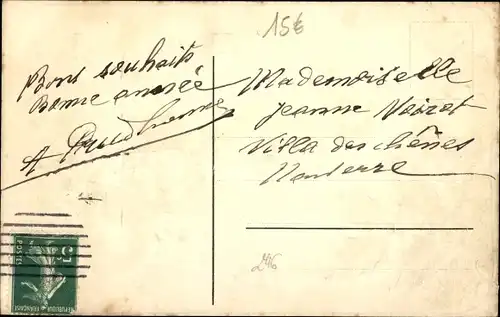 15€
Bons souhaits
Bonne année
A Prudhomme
Mademoiselle
Jeanne Voizot
Villa des chênes
Nanterre
246
5
POSTES